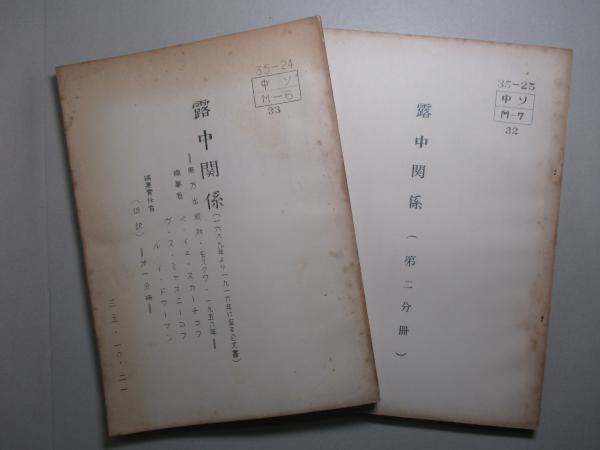 35-24
中ソ
M-6
33
露中関係
(一六八九年より一九一六年に至る公文書)
東方出版所・モスクワ・一九五八年
編纂者
ペ・イェ・スカーチコフ
ヴ・ス・ミャスニーコフ
編集責任者
(仮訳)
第一分冊
三五・一〇・二一
35-25
中ソ
M-7
32
露中関係(第二分冊)